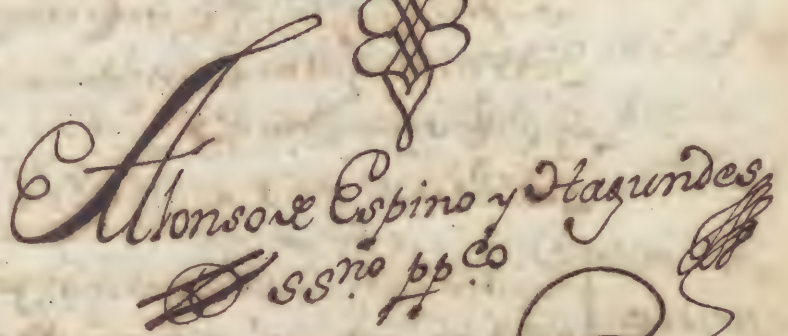 Alonso de Espino y Hagundes
ssno ppco